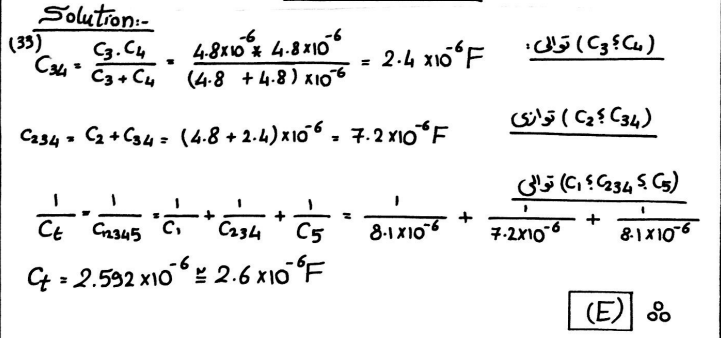 Solution:-
(33) C34 = C3 . C4 / C3 + C4 = 4.8x10^-6 * 4.8x10^-6 / (4.8 + 4.8) x10^-6 = 2.4 x10^-6 F توالي (C3 ؟ C4) :
C234 = C2 + C34 = (4.8 + 2.4) x10^-6 = 7.2 x10^-6 F توازي (C2 ؟ C34)
توالي (C1 ؟ C234 ؟ C5)
1/Ct = 1/C12345 = 1/C1 + 1/C234 + 1/C5 = 1/8.1x10^-6 + 1/7.2x10^-6 + 1/8.1x10^-6
Ct = 2.592 x10^-6 ≅ 2.6 x10^-6 F
(E)